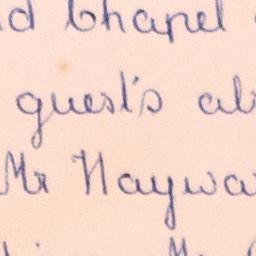 d Chapel
guest's al
Mr Haywa